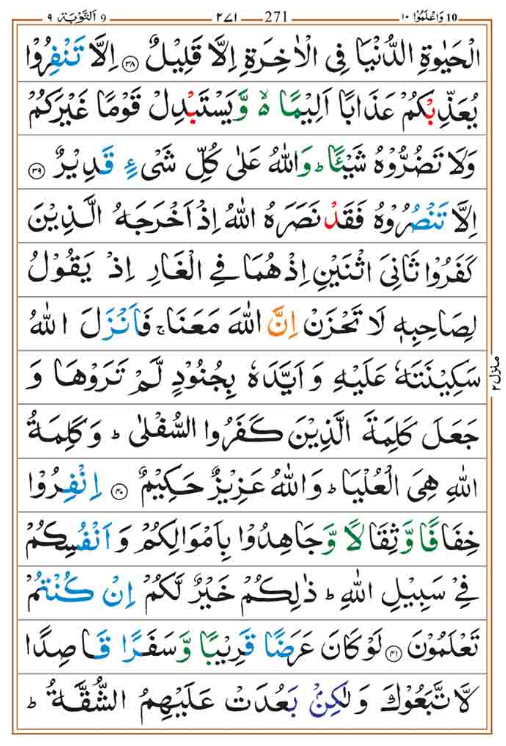 10 وَاعْلَمُوْۤا ١٠ 271 ٢٧١ 9 اَلتَّوْبَة ٩
الْحَيٰوةِ الدُّنْيَا فِى الْاٰخِرَةِ اِلَّا قَلِيْلٌ ﴿٣٨﴾ اِلَّا تَنْفِرُوْا
يُعَذِّبْكُمْ عَذَابًا اَلِيْمًا ۙ وَّيَسْتَبْدِلْ قَوْمًا غَيْرَكُمْ
وَلَا تَضُرُّوْهُ شَيْـًٔا ؕ وَاللّٰهُ عَلٰى كُلِّ شَىْءٍ قَدِيْرٌ ﴿٣٩﴾
اِلَّا تَنْصُرُوْهُ فَقَدْ نَصَرَهُ اللّٰهُ اِذْ اَخْرَجَهُ الَّذِيْنَ
كَفَرُوْا ثَانِىَ اثْنَيْنِ اِذْ هُمَا فِى الْغَارِ اِذْ يَقُوْلُ
لِصَاحِبِهٖ لَا تَحْزَنْ اِنَّ اللّٰهَ مَعَنَا ۚ فَاَنْزَلَ اللّٰهُ
سَكِيْنَتَهٗ عَلَيْهِ وَ اَيَّدَهٗ بِجُنُوْدٍ لَّمْ تَرَوْهَا وَ
جَعَلَ كَلِمَةَ الَّذِيْنَ كَفَرُوا السُّفْلٰى ؕ وَ كَلِمَةُ
اللّٰهِ هِىَ الْعُلْيَا ؕ وَاللّٰهُ عَزِيْزٌ حَكِيْمٌ ﴿٤٠﴾ اِنْفِرُوْا
خِفَافًا وَّ ثِقَالًا وَّ جَاهِدُوْا بِاَمْوَالِكُمْ وَ اَنْفُسِكُمْ
فِىْ سَبِيْلِ اللّٰهِ ؕ ذٰلِكُمْ خَيْرٌ لَّكُمْ اِنْ كُنْتُمْ
تَعْلَمُوْنَ ﴿٤١﴾ لَوْ كَانَ عَرَضًا قَرِيْبًا وَّ سَفَرًا قَاصِدًا
لَّاتَّبَعُوْكَ وَ لٰكِنْۢ بَعُدَتْ عَلَيْهِمُ الشُّقَّةُ ؕ
منزل ٢